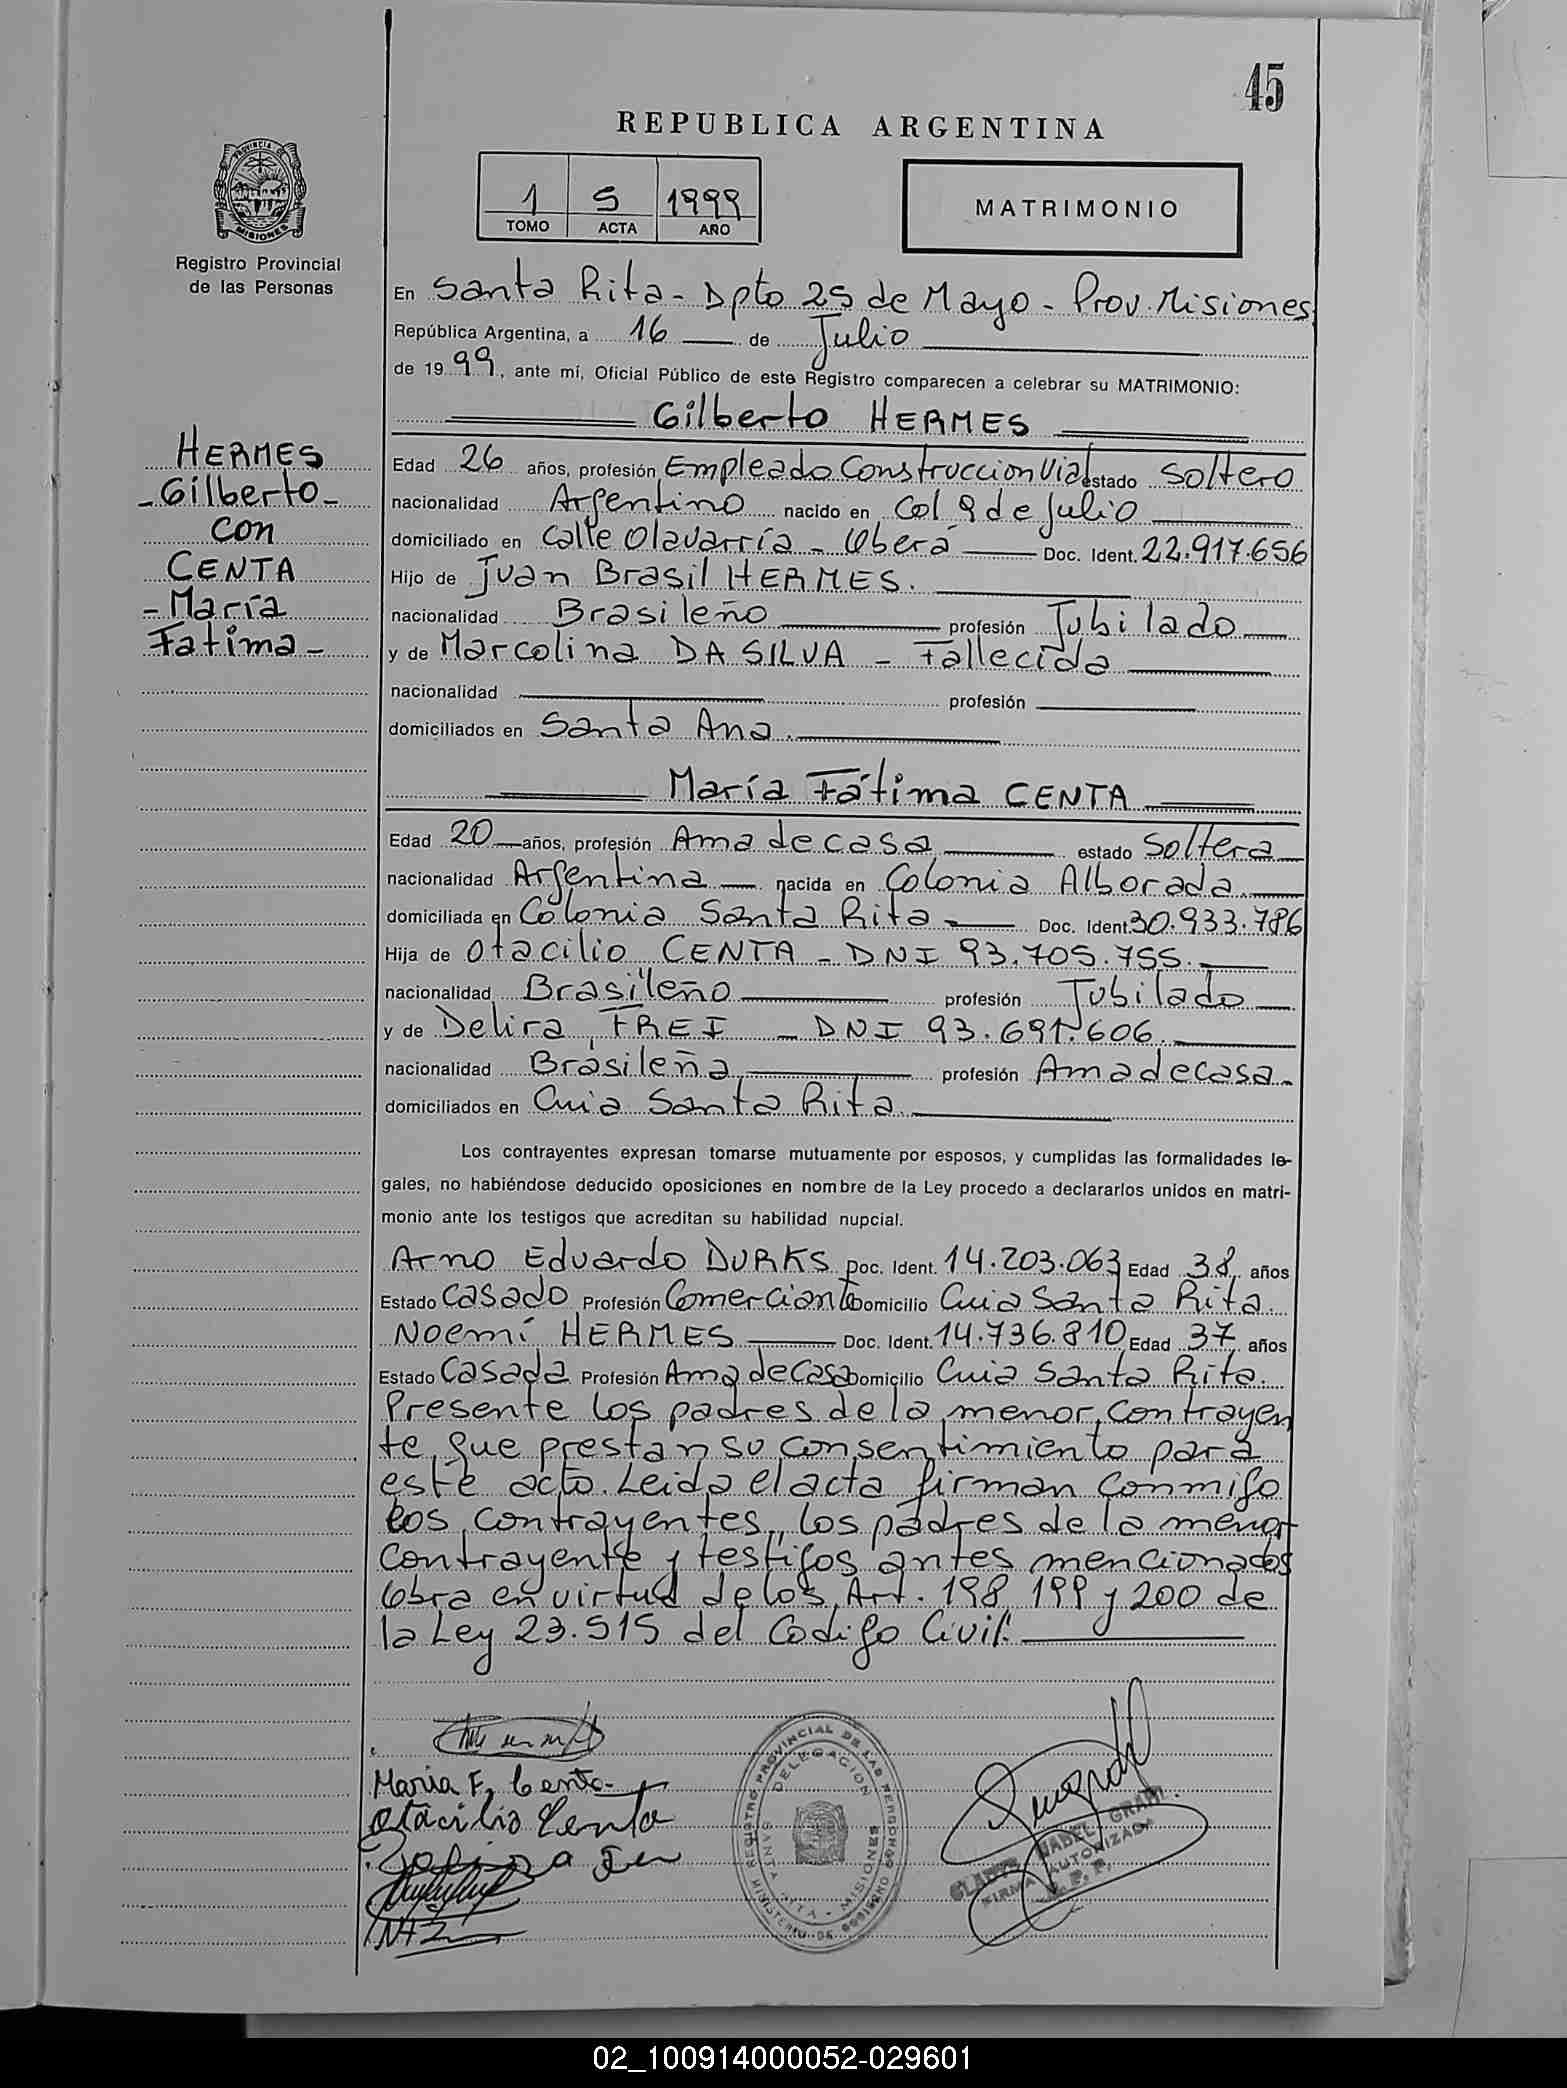 45
REPUBLICA ARGENTINA
1 5 1999
TOMO ACTA AÑO
MATRIMONIO
PROVINCIA DE MISIONES
Registro Provincial
de las Personas
HERMES
-Gilberto-
con
CENTA
-María
Fatima-
En Santa Rita - Dpto 25 de Mayo - Prov. Misiones
República Argentina, a 16 de Julio
de 1999, ante mí, Oficial Público de este Registro comparecen a celebrar su MATRIMONIO:
Gilberto HERMES
Edad 26 años, profesión Empleado Construccion Vial estado Soltero
nacionalidad Argentino nacido en Col 9 de Julio
domiciliado en Calle Olavarría - Oberá Doc. Ident. 22.917.656
Hijo de Juan Brasil HERMES.
nacionalidad Brasileño profesión Jubilado
y de Marcolina DA SILVA - Fallecida
nacionalidad profesión
domiciliados en Santa Ana.
María Fátima CENTA
Edad 20 años, profesión Ama de casa estado Soltera
nacionalidad Argentina nacida en Colonia Alborada.
domiciliada en Colonia Santa Rita Doc. Ident. 30.933.786
Hija de Otacilio CENTA - DNI 93.705.755.
nacionalidad Brasileño profesión Jubilado
y de Delira FREI - DNI 93.691.606.
nacionalidad Brasileña profesión Ama de casa
domiciliados en Cnia Santa Rita
Los contrayentes expresan tomarse mutuamente por esposos, y cumplidas las formalidades le-
gales, no habiéndose deducido oposiciones en nombre de la Ley procedo a declararlos unidos en matri-
monio ante los testigos que acreditan su habilidad nupcial.
Arno Eduardo DURKS Doc. Ident. 14.203.063 Edad 38 años
Estado Casado Profesión Comerciante Domicilio Cnia Santa Rita.
Noemí HERMES Doc. Ident. 14.736.810 Edad 37 años
Estado Casada Profesión Ama de casa Domicilio Cnia Santa Rita.
Presente los padres de la menor contrayen
te que prestan su consentimiento para
este acto. Leida el acta firman conmigo
los contrayentes, los padres de la menor
contrayente y testigos antes mencionados
Obra en virtud de los Art. 198 199 y 200 de
la Ley 23.515 del Codigo Civil.
Maria F. Centa
Otacilio Centa
REGISTRO PROVINCIAL DE LAS PERSONAS
DELEGACION
SANTA RITA - MISIONES
MINISTERIO DE GOBIERNO
MABEL
FIRMA AUTORIZADA
02_100914000052-029601